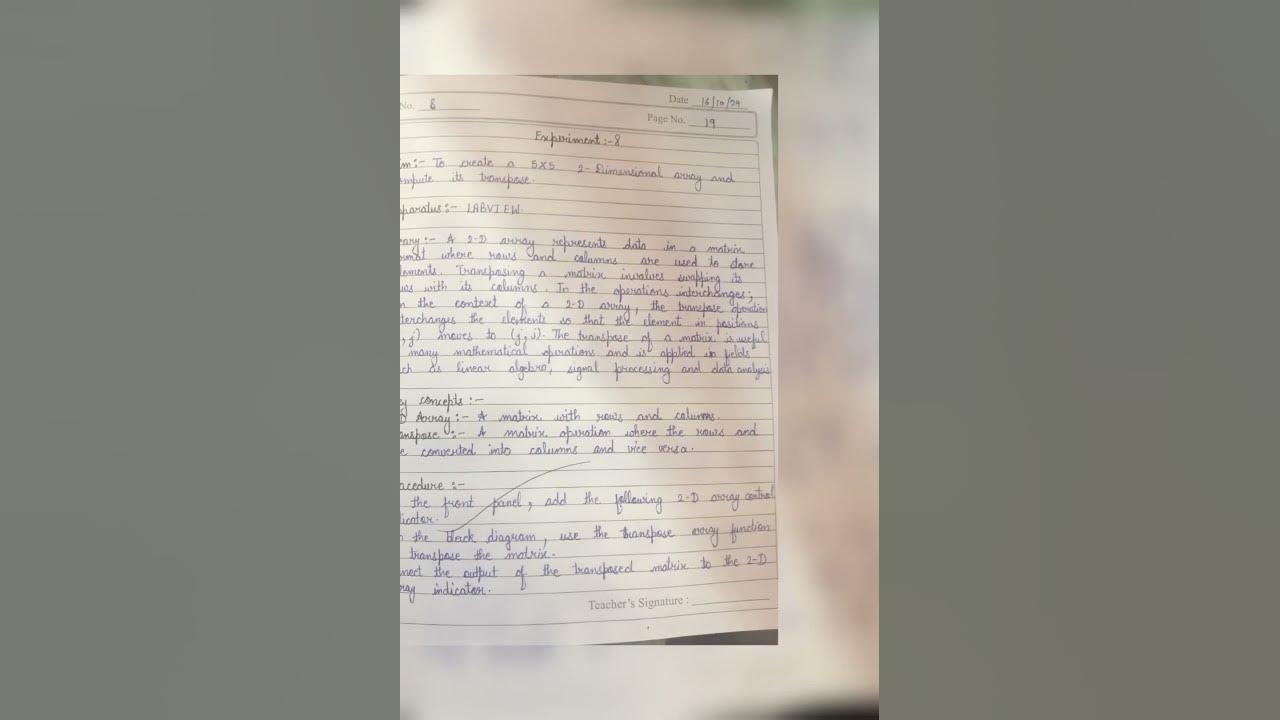 No. 8
Date 16/10/24
Page No. 19
Experiment :- 8
im :- To create a 5X5 2-Dimensional array and
ompute its transpose.
paratus :- LABVIEW.
eary :- A 2-D array represents data in a matrix
rmat where rows and columns are used to store
lements. Transposing a matrix involves swapping its
ws with its columns. In the operations interchanges;
n the context of a 2-D array, the transpose operation
terchanges the elements so that the element in positions
, j) moves to (j, i). The transpose of a matrix is useful
many mathematical operations and is applied in fields
ch as linear algebra, signal processing and data analysis
y concepts :-
D Array :- A matrix with rows and columns.
anspose :- A matrix operation where the rows and
e converted into columns and vice versa.
ocedure :-
the front panel, add the following 2-D array control
licator.
the block diagram, use the transpose array function
transpose the matrix.
nect the output of the transposed matrix to the 2-D
ray indicator.
Teacher's Signature :